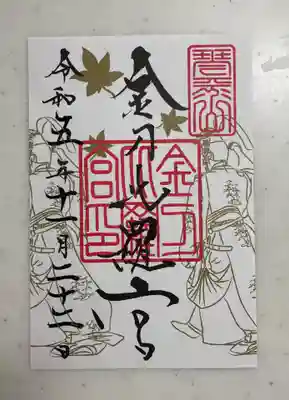 琴平山
金刀比羅宮
金刀比羅宮印
令和五年十一月二十日